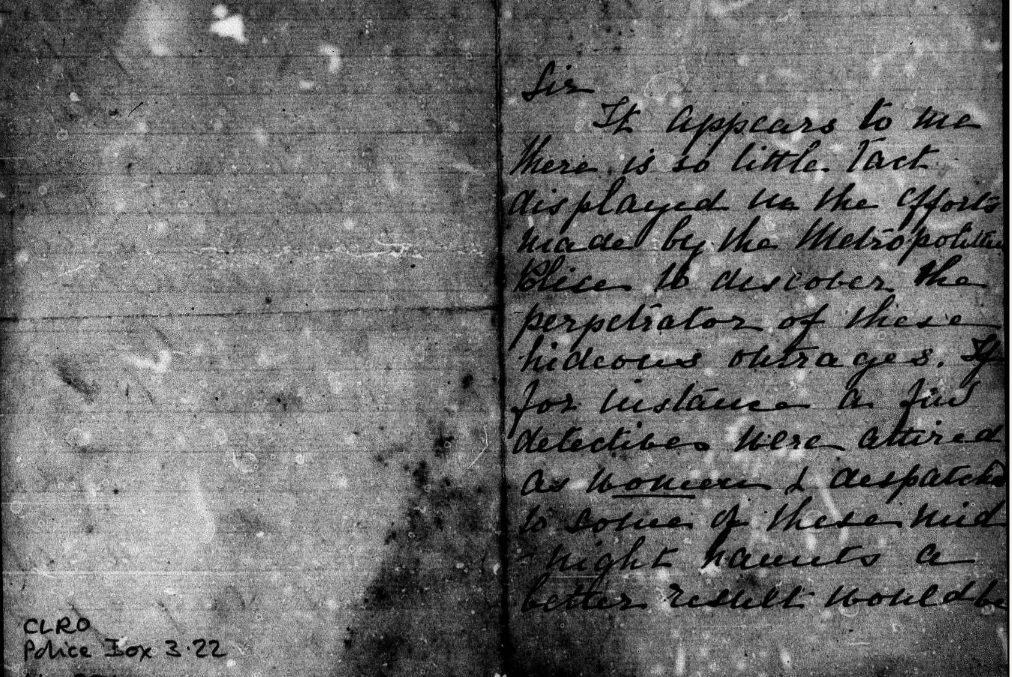 CLRO
Police Box 3.22
Sir
It appears to me
there is so little Tact
displayed in the efforts
made by the Metropolitan
Police to discover the
perpetrator of these
hideous outrages. If
for instance a few
detectives were attired
as women & despatched
to some of these mid
-night haunts a
better result would be